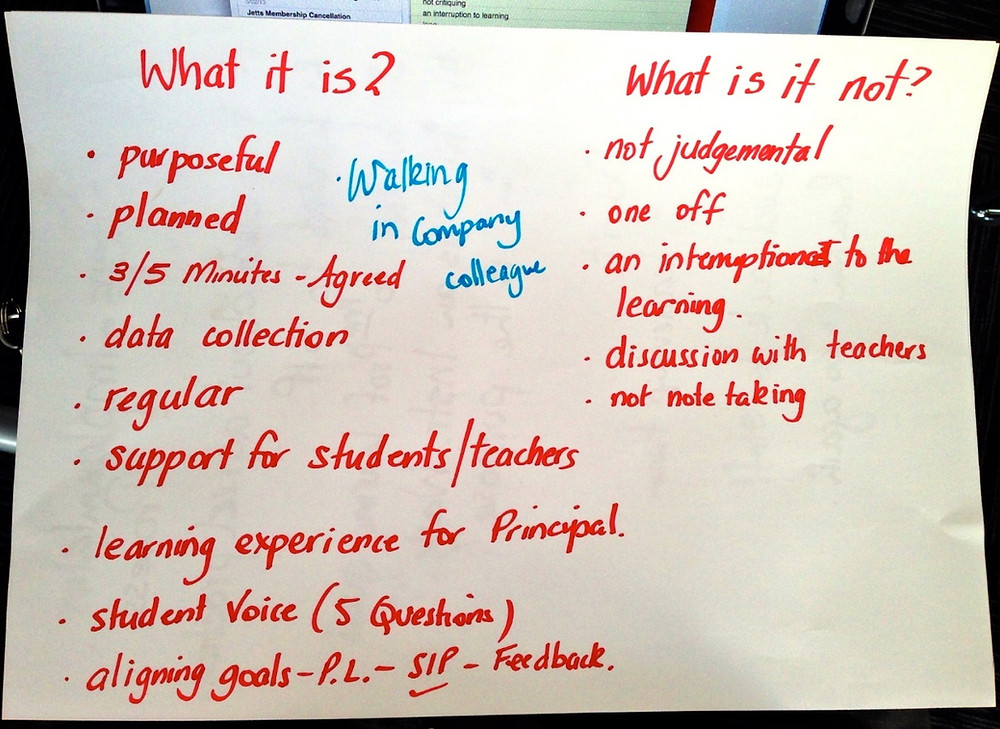 not critiquing
Jetts Membership Cancellation
an interruption to learning
What it is?
• purposeful
• planned
• 3/5 Minutes - Agreed
• data collection
• regular
• support for students/teachers
• learning experience for Principal.
• student Voice (5 Questions)
• aligning goals - P.L. - SIP - Feedback.
• Walking
in Company
colleague
What is it not?
• not judgemental
• one off
• an interruption to the
learning.
• discussion with teachers
• not note taking